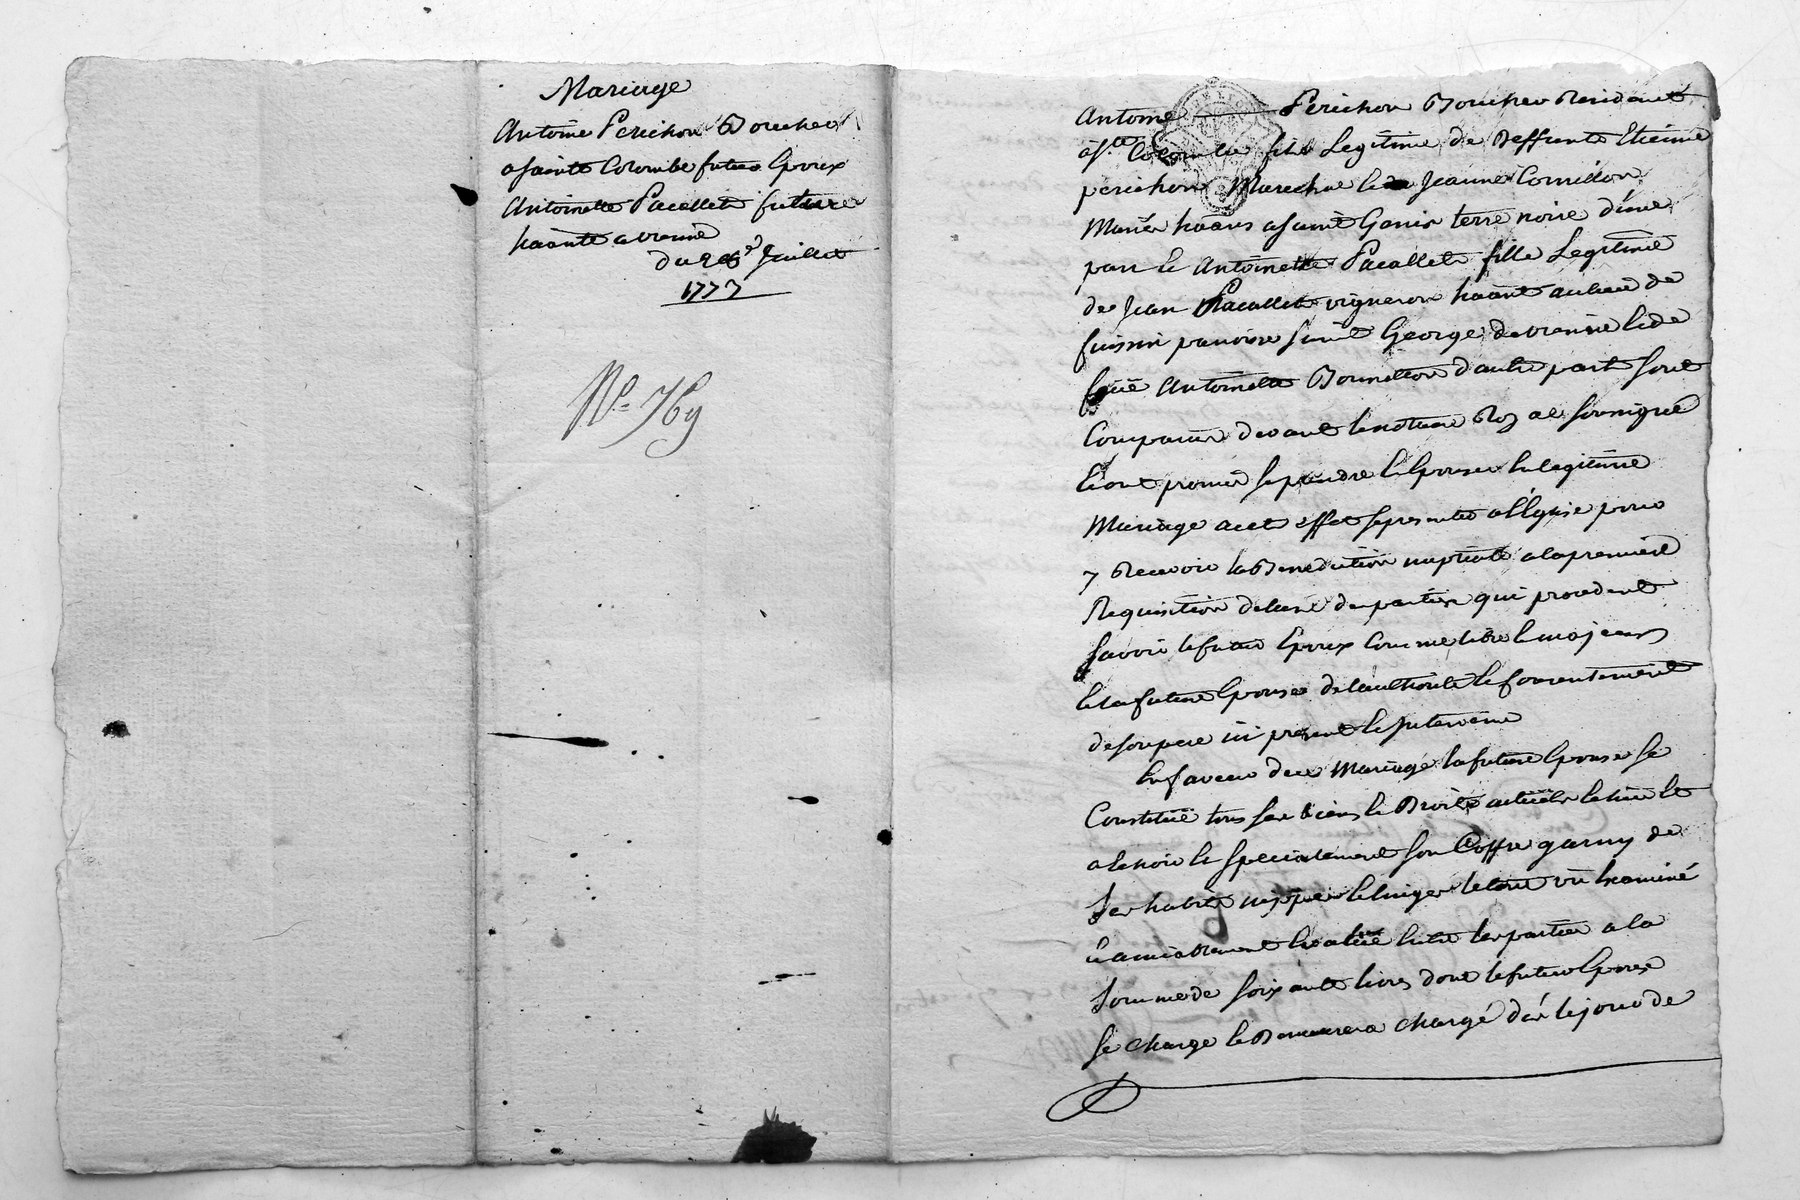 Mariage
Antoine Perichon Boucher
a sainte Colombe futur Epoux
Antoinette Pacallet future
haante a vienne
du 26e Juillet
1773
No
Antoine Perichon Boucher Residant
a Ste Colombe fils Legitime de Deffunts Etienne
perichon Marechal et de Jeanne Cornillon
Mariés haans a saint Genis terre noire d'une
part et Antoinette Pacallet fille Legitime
de Jean Pacallet vigneron haant au lieu de
fuissin paroisse saint George de vienne et de
feüe Antoinette Bonneton d'autre part sont
Comparus devant le notaire Royal soussigné
et ont promis se prendre et Epouser en legitime
Mariage a cet effet se presenter a l'Eglise pour
y Recevoir la Benediction nuptiale a la premiere
Requisition de l'une des parties qui procedent
savoir le futur Epoux comme libre et majeur
et la future Epouse de l'authorité et consentement
de son pere ici present et intervenu
En faveur de ce Mariage la future Epouse se
Constitüe tous ses biens et Droits actuels et
a echoir et specialement son Coffre garny de
ses habits nippes et linges le tout vû Examiné
et amiablement Evalüé entre les parties a la
somme de soixante livres dont le futur Epoux
se charge et Demeurera chargé dès le jour de